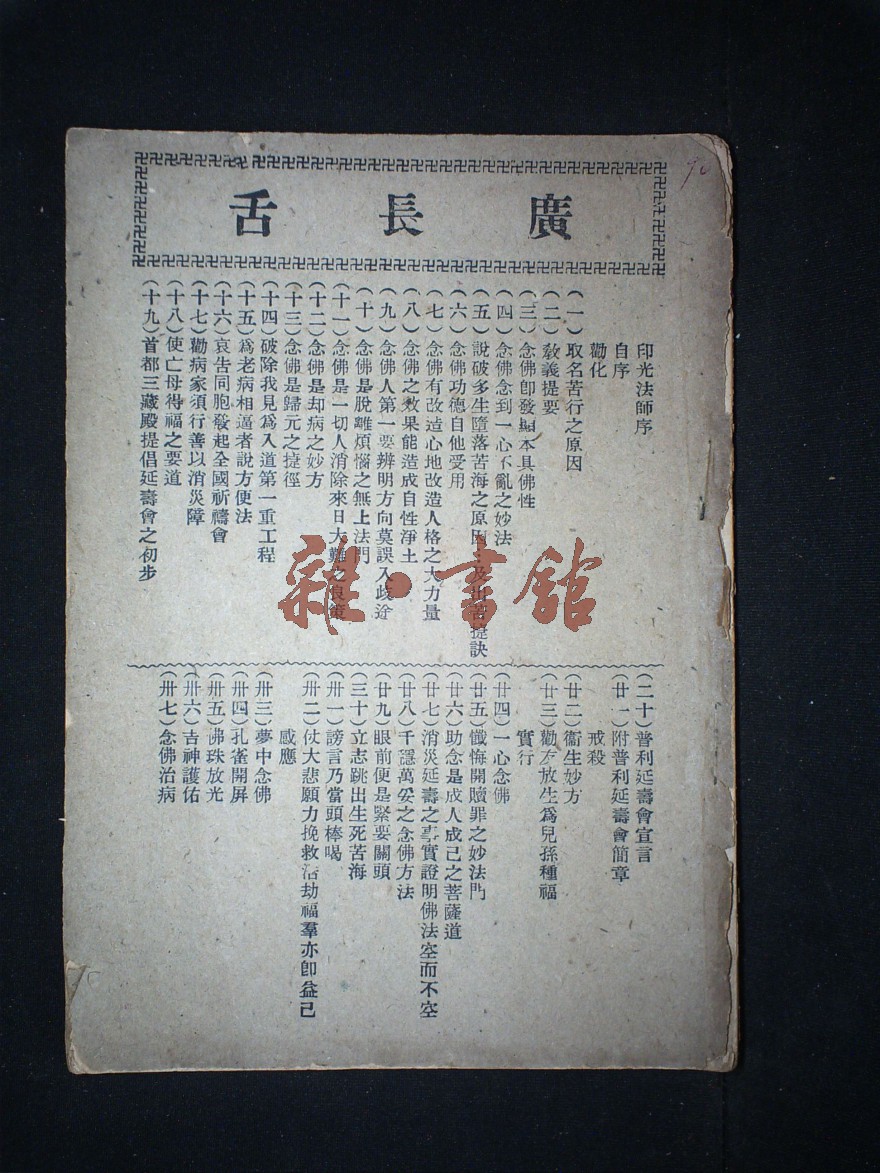 廣長舌
印光法師序
自序
勸化
（一）取名苦行之原因
（二）教義提要
（三）念佛卽發顯本具佛性
（四）念佛念到一心不亂之妙法
（五）說破多生墮落苦海之原因及出苦捷訣
（六）念佛功德自他受用
（七）念佛有改造心地改造人格之大力量
（八）念佛之效果能造成自性淨土
（九）念佛人第一要辨明方向莫誤入歧途
（十）念佛是脫離煩惱之無上法門
（十一）念佛是一切人消除來日大難之良策
（十二）念佛是却病之妙方
（十三）念佛是歸元之捷徑
（十四）破除我見爲入道第一重工程
（十五）爲老病相逼者說方便法
（十六）哀告同胞發起全國祈禱會
（十七）勸病家須行善以消災障
（十八）使亡母得福之要道
（十九）首都三藏殿提倡延壽會之初步
（二十）普利延壽會宣言
（廿一）附普利延壽會簡章
戒殺
（廿二）衞生妙方
（廿三）勸友放生爲兒孫種福
實行
（廿四）一心念佛
（廿五）懺悔開贖罪之妙法門
（廿六）助念是成人成己之菩薩道
（廿七）消災延壽之事實證明佛法空而不空
（廿八）千穩萬妥之念佛方法
（廿九）眼前便是緊要關頭
（三十）立志跳出生死苦海
（卅一）謗言乃當頭棒喝
（卅二）仗大悲願力挽救浩劫福羣亦卽益己
感應
（卅三）夢中念佛
（卅四）孔雀開屏
（卅五）佛珠放光
（卅六）吉神護佑
（卅七）念佛治病
雜·書館
90